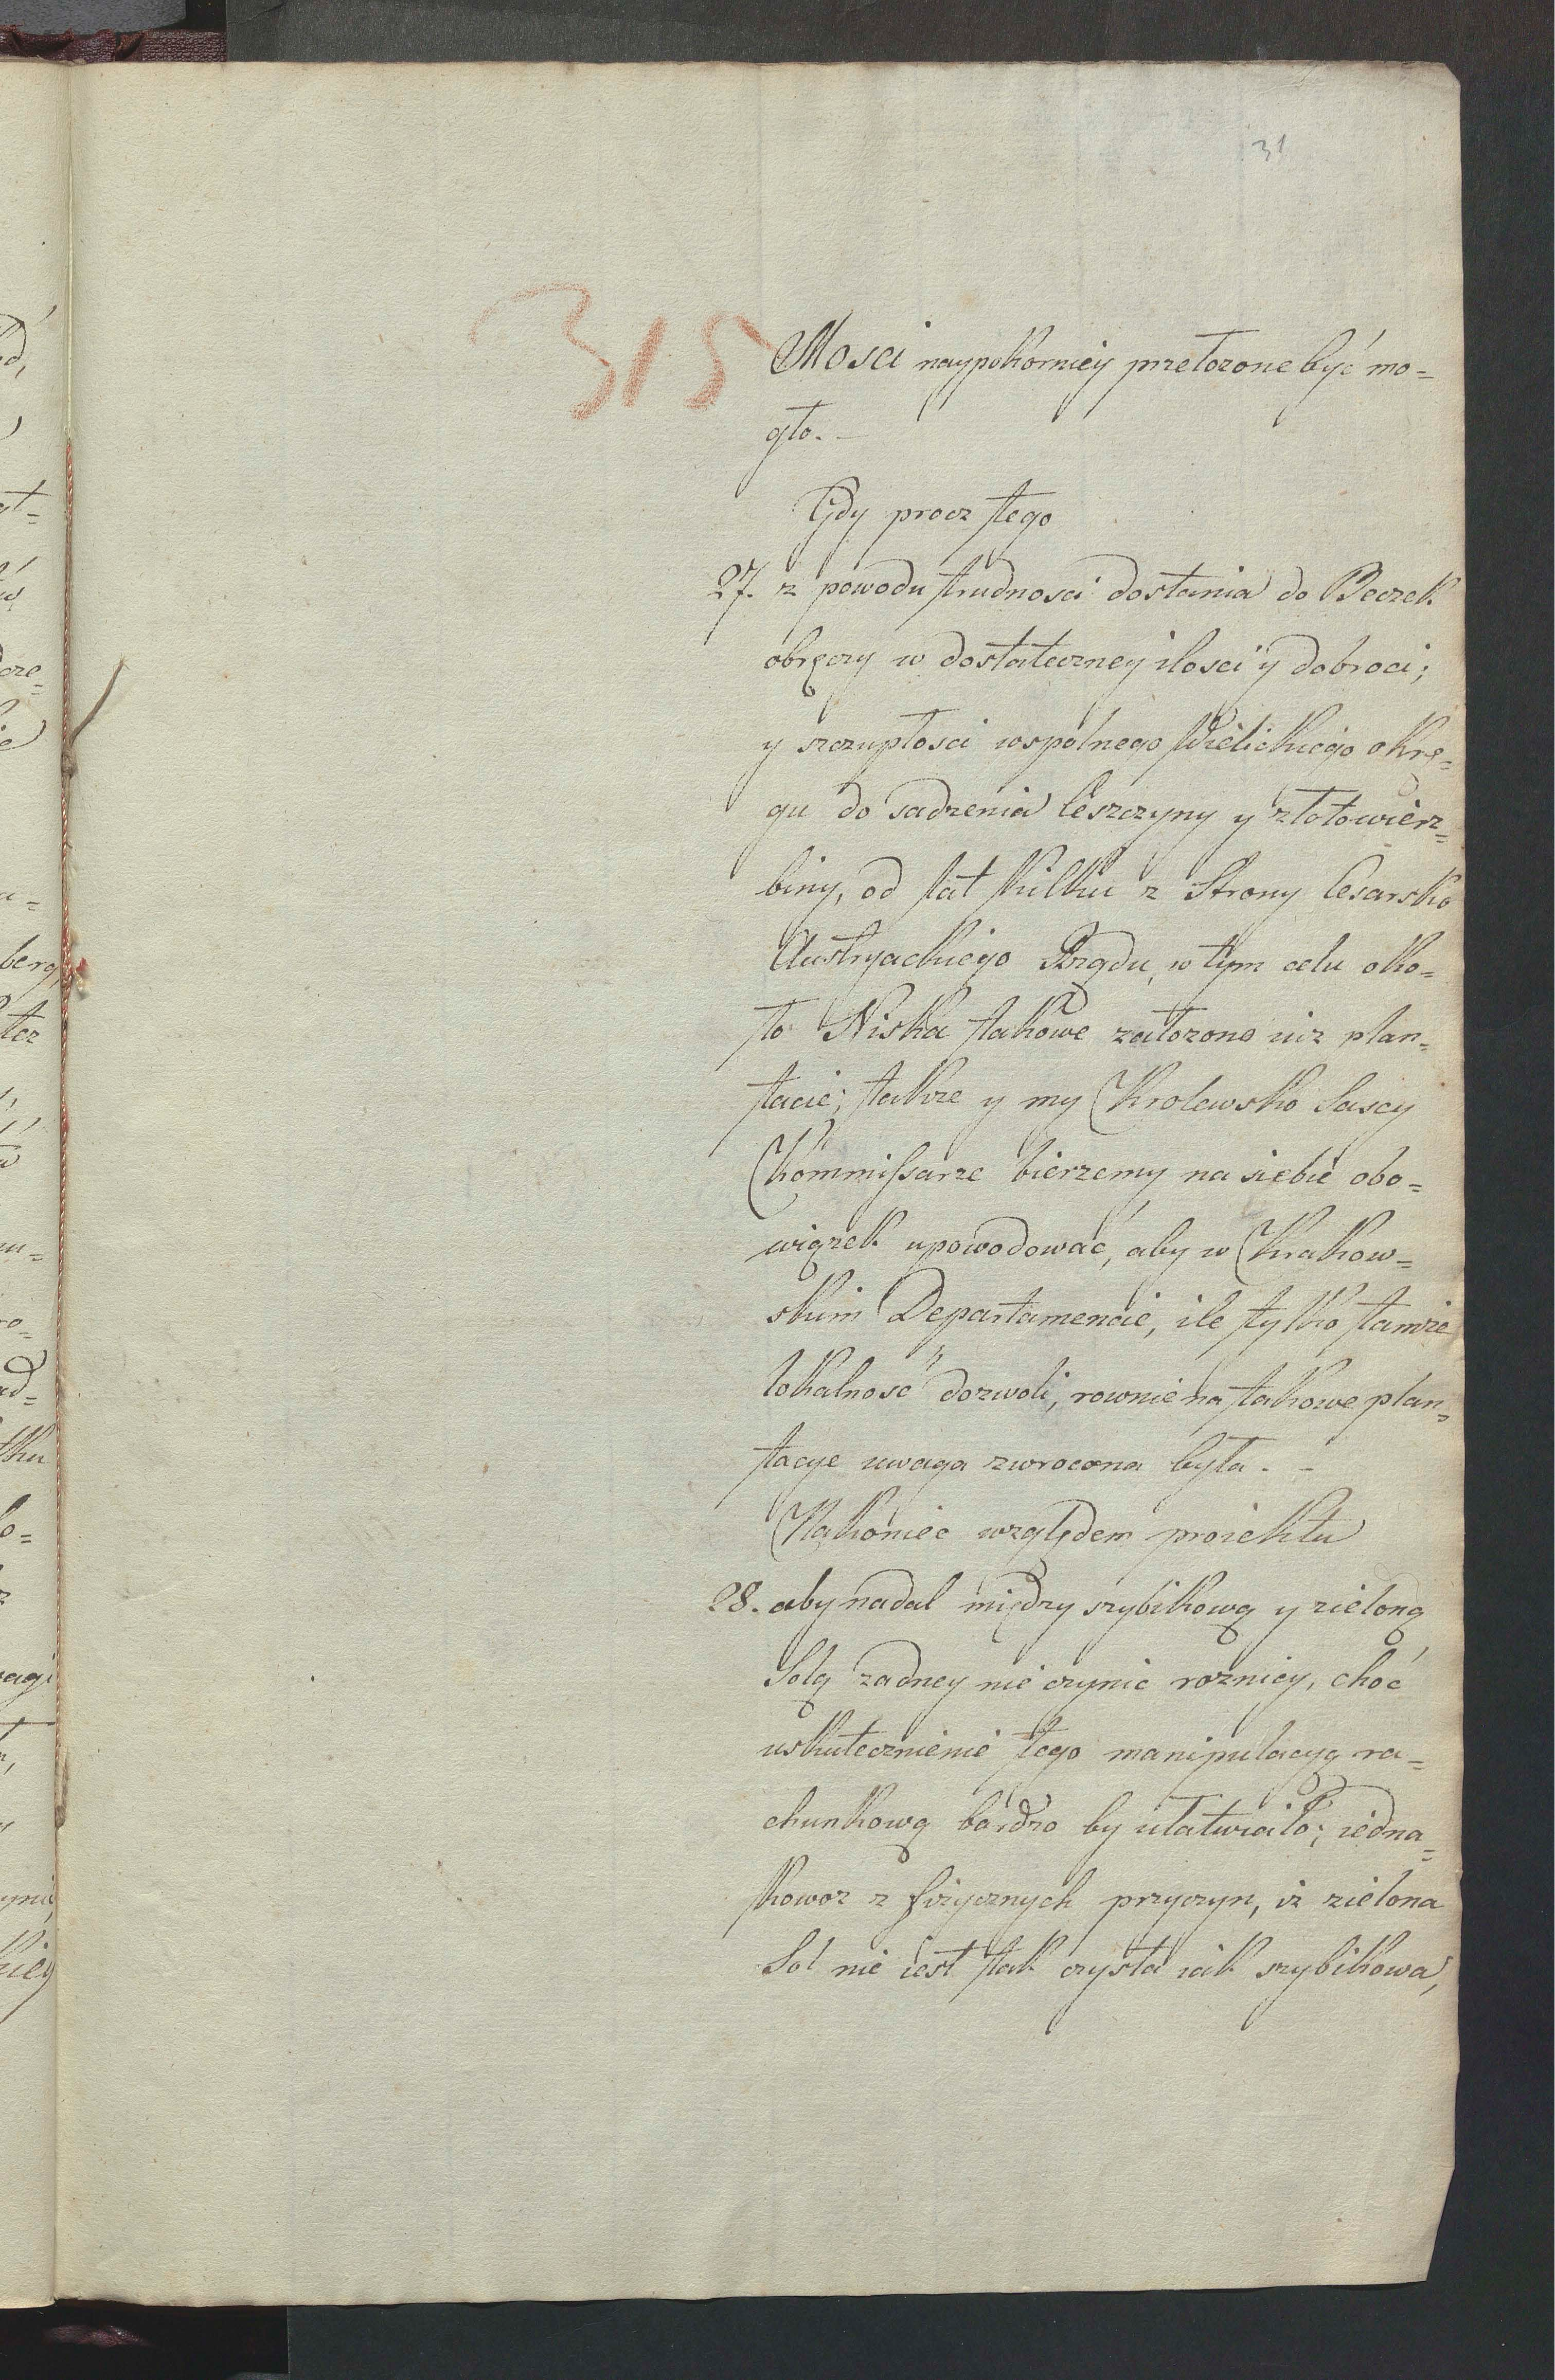 31
315
Mosci naypokorniey przełozone być mo=
gło. –
Gdy procz tego
27. z powodu trudnosci dostania do Beczek
obręczy w dostateczney ilosci y dobroci;
y szczupłosci wspolnego Wielickiego okrę=
gu do sadzenia leszczyny y złotowierz=
biny, od lat kilku z Strony Cesarsko
Austryackiego Rządu, w tym celu oko=
ło Niska takowe załozono iuz plan=
tacie; takze y my Krolewsko Sascy
Kommissarze bierzemy na siebie obo=
wiązek upowodować, aby w Krakow=
skim Departamencie, ile tylko tamze
lokalność dozwoli, rownie na takowe plan=
tacye uwaga zwrocona była. –
Nakoniec względem proiektu
28. aby nadal między szybikową y zieloną
Solą zadney nie czynic roznicy, choć
uskutecznienie tego manipulacyą ra=
chunkową bardzo by ułatwiało; iedna=
kowoz z fizycznych przyczyn, iz zielona
Sol nie iest tak czysta iak szybikowa,